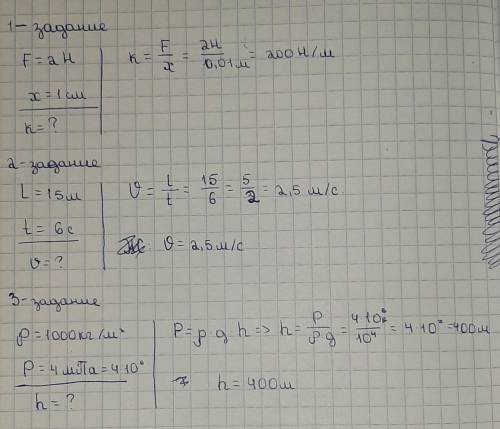 1- задание
F = 2 Н
x = 1 см
k = ?
k = F/x = 2Н/0,01м = 200 Н/м
2- задание
L = 15 м
t = 6 с
υ = ?
υ = l/t = 15/6 = 5/2 = 2,5 м/с
υ = 2,5 м/с
3- задание
ρ = 1000 кг/м³
P = 4 мПа = 4·10⁶
h = ?
P = ρ g h => h = P/ρg = 4·10⁶/10⁴ = 4·10² = 400м
h = 400м